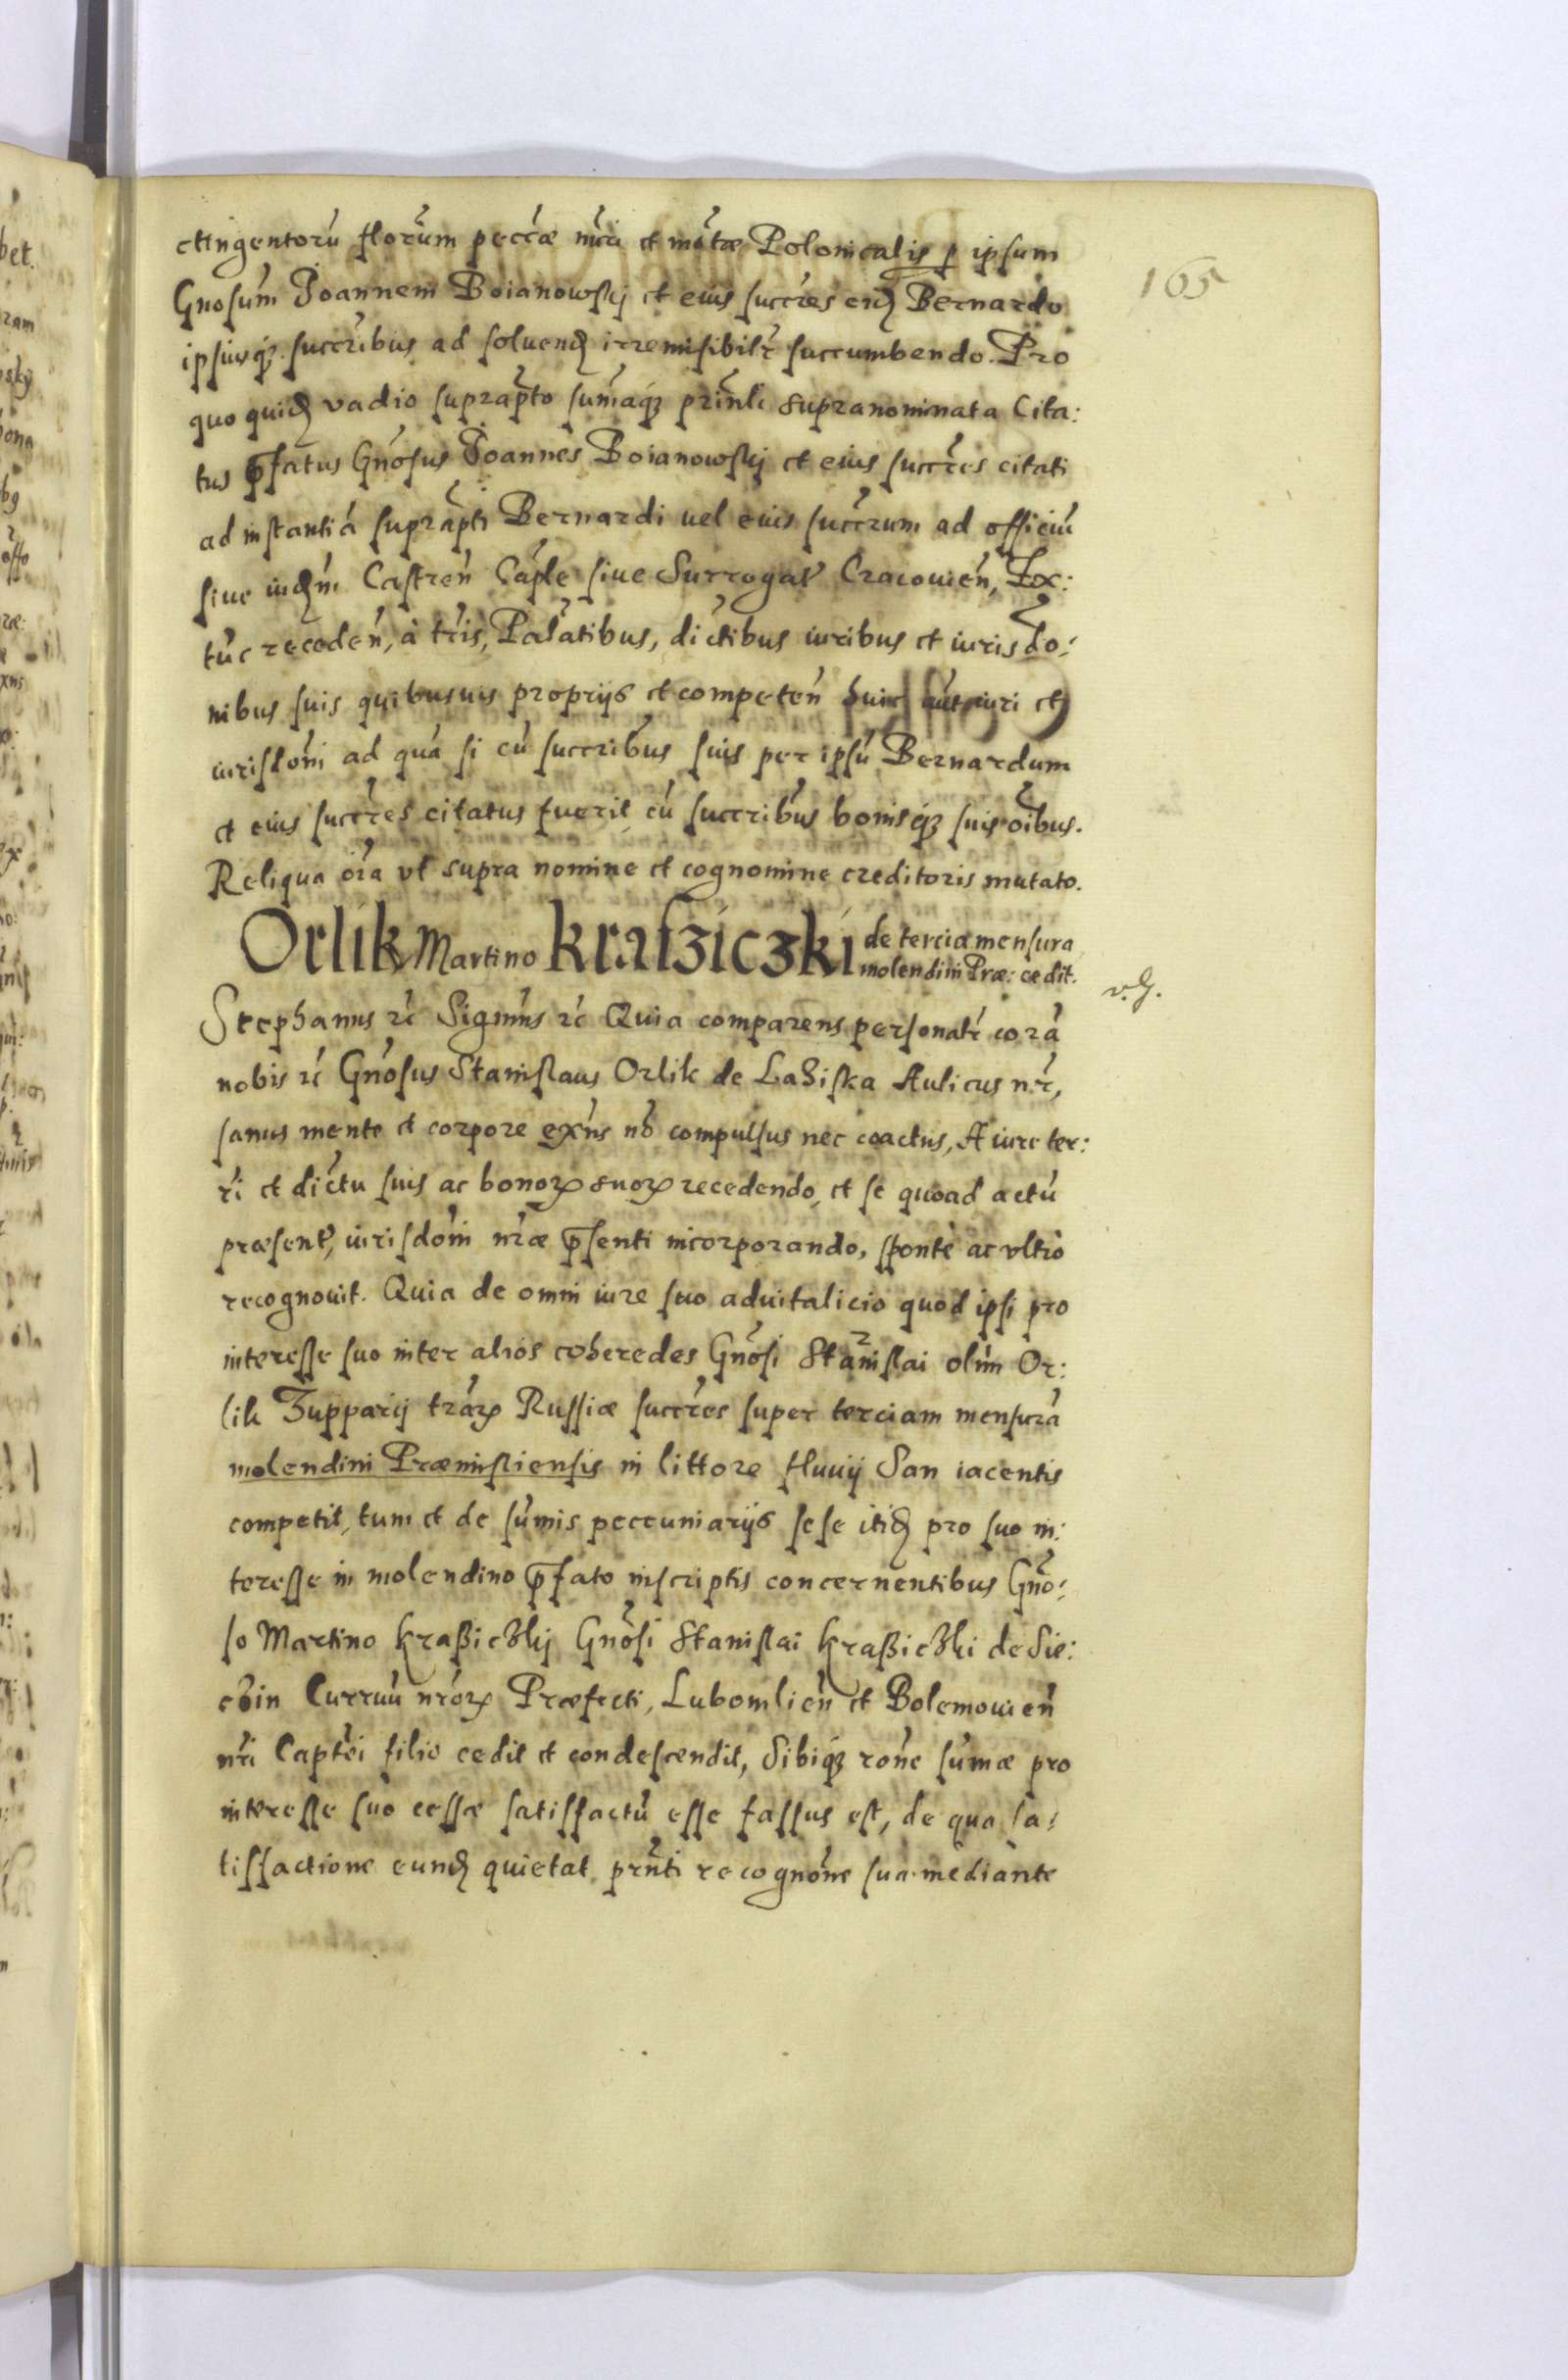 ctingentorũ florũm pecc̃æ nũri et mõtæ Polonicalis p ipsum
Gnosũm Joannem Boianowskj et eius succr̃es eid̃ Bernardo
ipsiusq3 succr̃ibus ad soluend̃ irremisibilr̃ succumbendo. Pro
quo quid̃ vadio suprap̃to sum̃aq3 prin̄li supranominata Cita:
tus p̄fatus Gnõsus Joannes Boianowskj et eius succr̃es citati
ad instantiã suprap̃ti Bernardi uel eius succr̃um ad officiũ
siue iud̃m Castreñ Cap̃le siue Surrogat̃ Cracouień, Ex:
tũc receden̄, à tr̃is, Palãtibus, dic̃tibus iuribus et iurisdo:
nibus suis quibusuis proprijs et competeñ huic aũt iuri et
iurisdõni ad quã si cũ succr̃ibus suis per ipsũ Bernardum
et eius succr̃es citatus fuerit, cũ succr̃ibus bonisq3 suis oĩbus.
Reliqua oĩa vt supra nomine et cognomine creditoris mutato.
Orlik Martino krassiczki de tercia mensura
molendini Præ: cedit.
Stephanus rc̃ Signũs rc̃ Quia comparens personalr̃ corã
nobis rc̃ Gnõsus Stanislaus Orlik de Laziska Aulicus nr̃,
sanus mente et corpore exn̄s nõ compulsus nec coactus, A iure ter:
ri et dic̃tu suis ac bonorꝝ suorꝝ recedendo, et se quoad actũ
præsent̃, iurisdõni nr̃æ p̄senti incorporando, spontè ac vltrò
recognouit. Quia de omni iure suo aduitalicio quod ipsi pro
interesse suo inter alios coheredes Gnõsi Stãnislai olim Or:
lik Zupparij tr̃arꝝ Russiæ succr̃es super terciam mensurã
molendini Præmisliensis in littore fluuij San iacentis
competit, tum et de sum̃is peccuniarijs sese itid̃ pro suo in:
teresse in molendino p̄fato inscriptis concernentibus Gnõ:
so Martino kraßiczkj Gnõsi Stanislai kraßiczki de Sie:
czin Curruũ nr̃orꝝ Præfecti, Lubomlień et Bolemouień
nr̃i Captẽi filio cedit et condescendit, Sibiq3 rone sum̃æ pro
interesse suo cessæ satisfactũ esse fassus est, de qua sa:
tisfactione eund̃ quietat pr̃nti recognõne sua mediante
165
v. G.